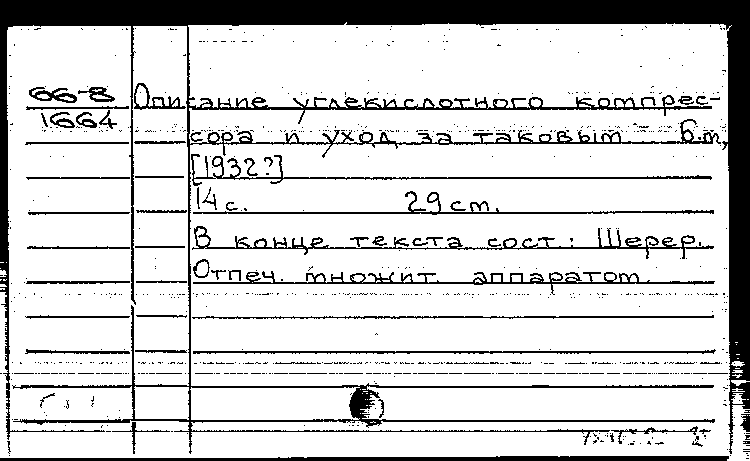 66-8
1664
Описание углекислотного компрес-
сора и уход за таковым Б.м.,
[1932?]
14 с. 29 cm.
В конце текста сост.: Шерер.
Отпеч. множит. аппаратом.